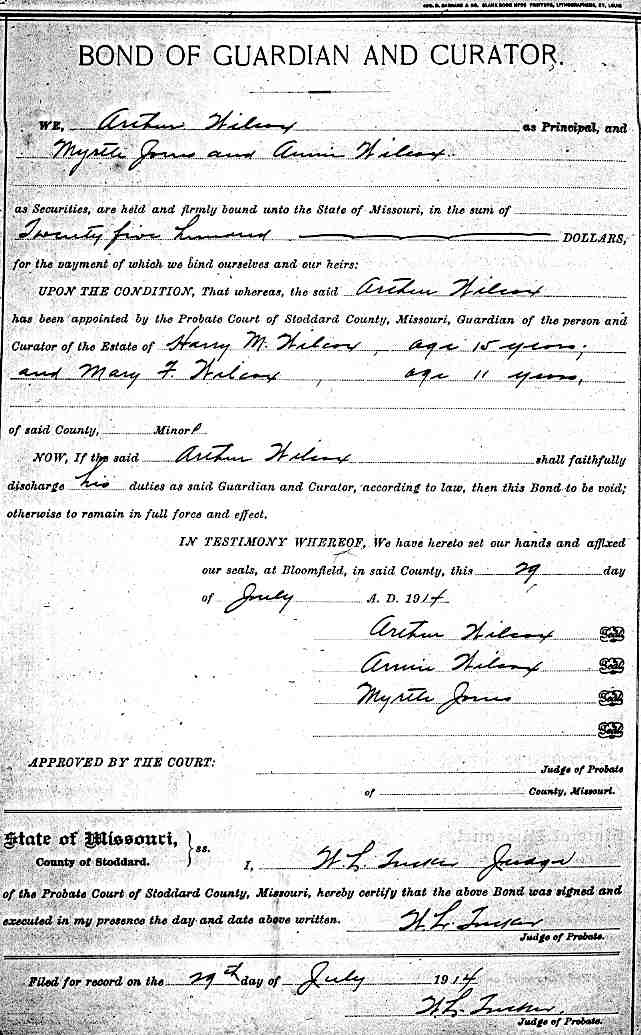 GEO. D. BARNARD & CO. BLANK BOOK MFRS PRINTERS, LITHOGRAPHERS, ST. LOUIS
BOND OF GUARDIAN AND CURATOR.
WE, Arthur Wilcox as Principal, and
Myrtle Jones and Annie Wilcox.
as Securities, are held and firmly bound unto the State of Missouri, in the sum of
Twenty five hundred DOLLARS,
for the payment of which we bind ourselves and our heirs:
UPON THE CONDITION, That whereas, the said Arthur Wilcox
has been appointed by the Probate Court of Stoddard County, Missouri, Guardian of the person and
Curator of the Estate of Harry M. Wilcox, age 15 years;
and Mary F. Wilcox, age 11 years,
of said County, Minors
NOW, If the said Arthur Wilcox shall faithfully
discharge his duties as said Guardian and Curator, according to law, then this Bond to be void;
otherwise to remain in full force and effect.
IN TESTIMONY WHEREOF, We have hereto set our hands and affixed
our seals, at Bloomfield, in said County, this 29 day
of July A. D. 1914
Arthur Wilcox Seal
Annie Wilcox Seal
Myrtle Jones Seal
Seal
APPROVED BY THE COURT:
Judge of Probate
of County, Missouri.
State of Missouri,
County of Stoddard. } ss.
I, W. L. Tucker Judge
of the Probate Court of Stoddard County, Missouri, hereby certify that the above Bond was signed and
executed in my presence the day and date above written. W. L. Tucker
Judge of Probate.
Filed for record on the 29th day of July 1914
W. L. Tucker
Judge of Probate.